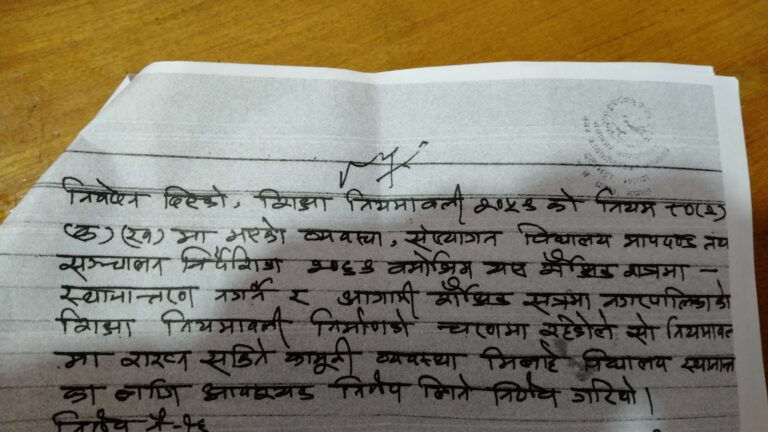 निवेदन दिएको, शिक्षा नियमावली २०५९ को नियम ८०(२)
(क) (ख) मा भएको व्यवस्था, संस्थागत विद्यालय मापदण्ड तथ
सञ्चालन निर्देशिका २०६९ बमोजिम यस शैक्षिक सत्रमा -
स्थानान्तरण नगर्ने र आगामी शैक्षिक सत्रमा नगरपालिकाको
शिक्षा नियमावली निर्माणको चरणमा रहेकोले सो नियमाव
मा सहित कानूनी व्यवस्था मिलाई विद्यालय स्थानान्त
का लागि आवश्यक निर्णय लिने निर्णय गरियो।
निर्णय नं-१६